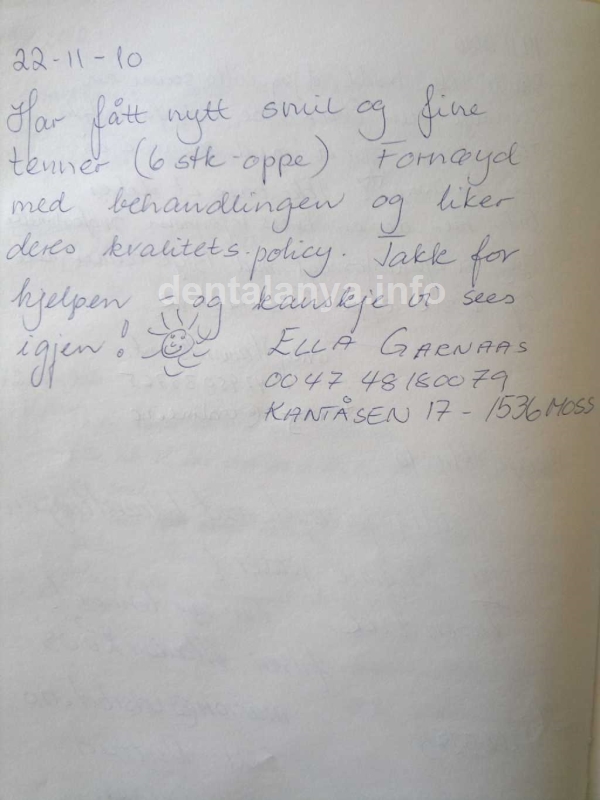 22-11-10
Har fått nytt smil og fine
tenner (6 stk-oppe) Fornøyd
med behandlingen og liker
deres kvalitets-policy. Takk for
hjelpen - og kanskje vi sees
igjen!
ELLA GARNAAS
0047 48180079
KANTÅSEN 17 - 1536 MOSS
dentalanya.info